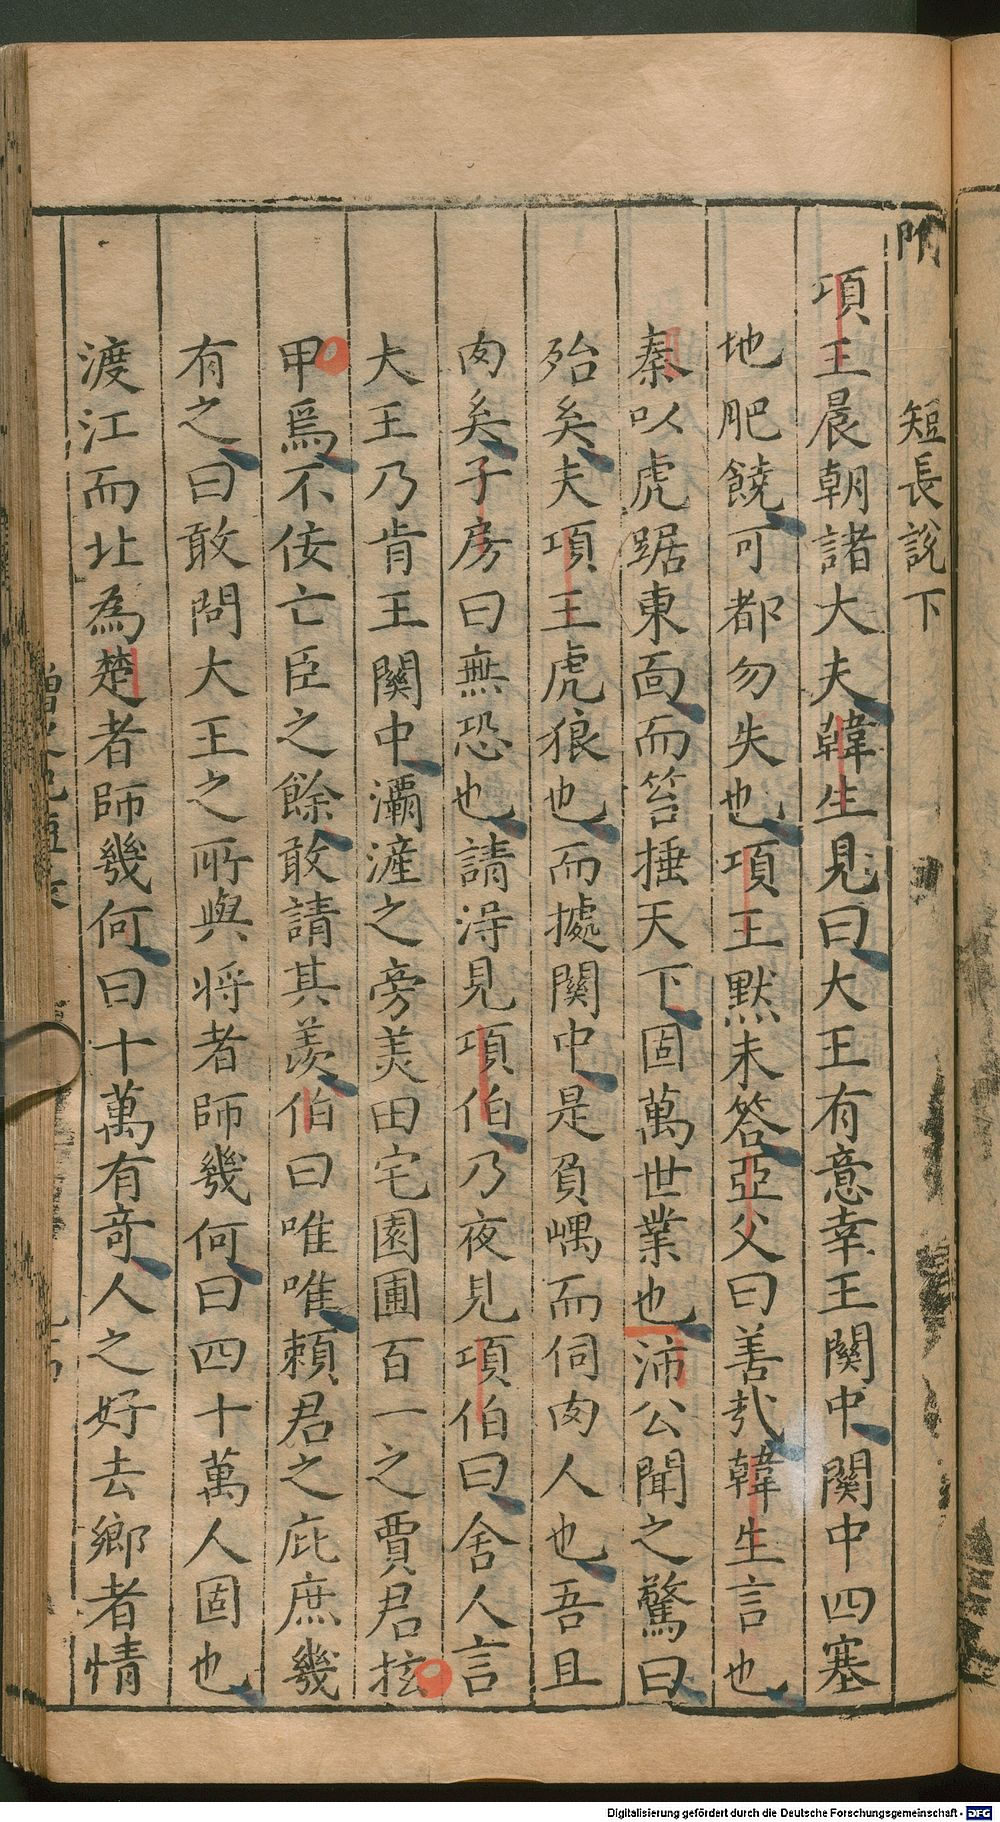 附
短長說下
項王晨朝諸大夫韓生見曰大王有意幸王關中關中四塞
地肥饒可都勿失也項王默未答亞父曰善哉韓生言也
秦以虎踞東面而笞捶天下固萬世業也沛公聞之驚曰
殆矣夫項王虎狼也而據關中是負嵎而伺肉人也吾且
肉矣子房曰無恐也請得見項伯乃夜見項伯曰舍人言
大王乃肯王關中灞滻之旁美田宅園圃百一之賈君拡
甲焉不佞亡臣之餘敢請其羨伯曰唯唯頼君之庇庶幾
有之曰敢問大王之所與將者師幾何曰四十萬人固也
渡江而北為楚者師幾何曰十萬有竒人之好去鄉者情
Digitalisierung gefördert durch die Deutsche Forschungsgemeinschaft - DFG